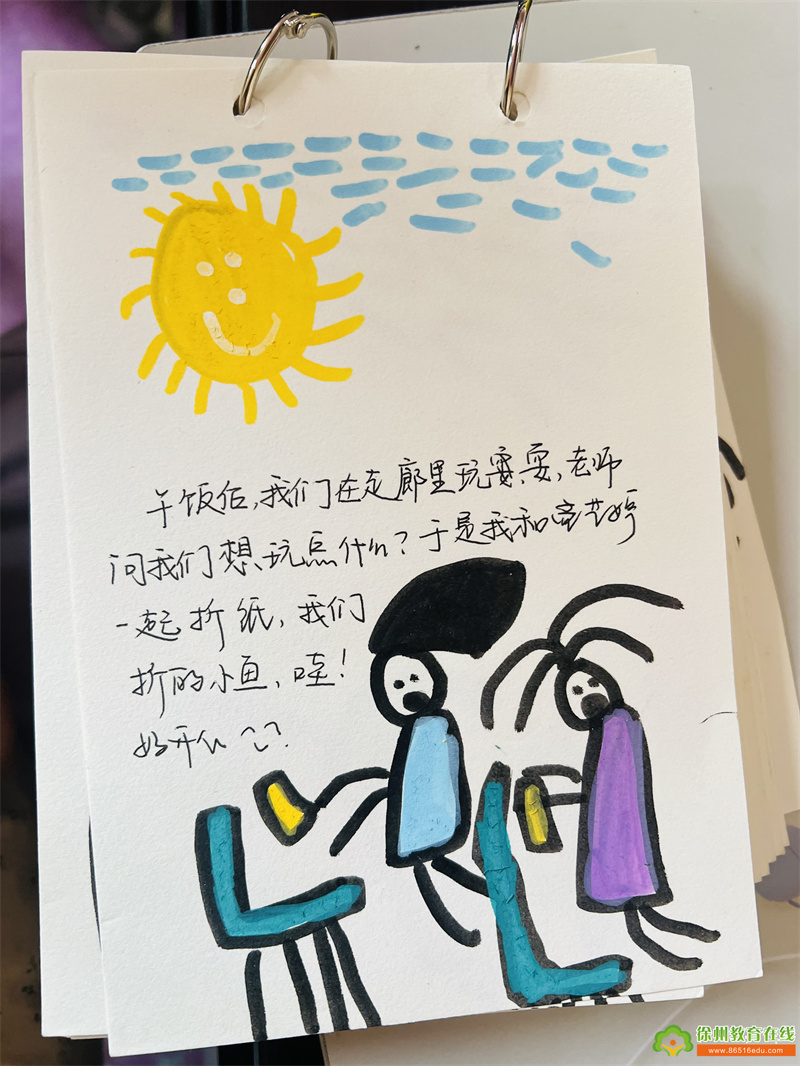 午饭后,我们在走廊里玩耍,老师
问我们想玩点什么?于是我和
一起折纸,我们
折的小鱼,哇!
好开心
徐州教育在线
www.86516edu.com